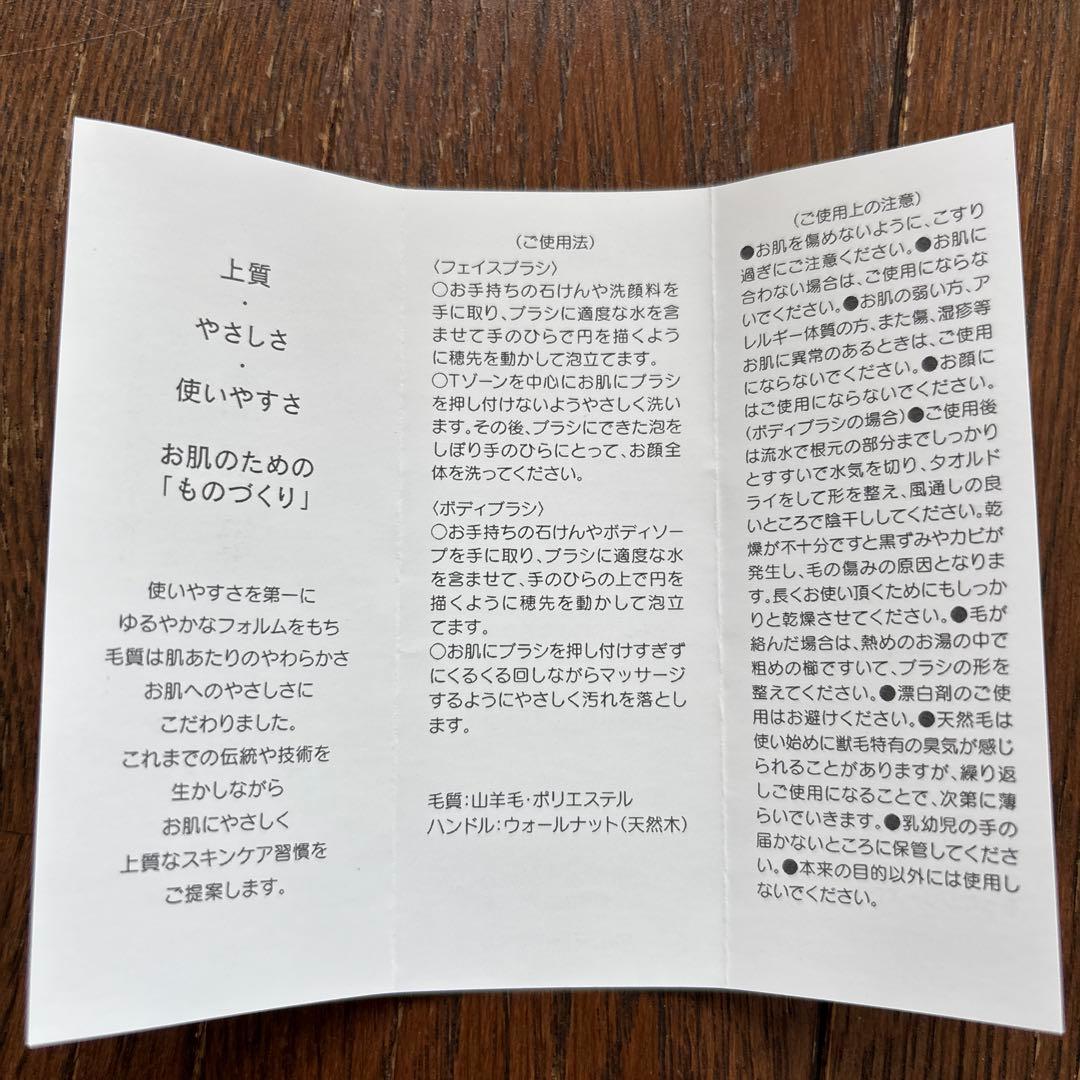 上質
・
やさしさ
・
使いやすさ
お肌のための
「ものづくり」
使いやすさを第一に
ゆるやかなフォルムをもち
毛質は肌あたりのやわらかさ
お肌へのやさしさに
こだわりました。
これまでの伝統や技術を
生かしながら
お肌にやさしく
上質なスキンケア習慣を
ご提案します。
（ご使用法）
〈フェイスブラシ〉
○お手持ちの石けんや洗顔料を
手に取り、ブラシに適度な水を含
ませて手のひらで円を描くよう
に穂先を動かして泡立てます。
○Tゾーンを中心にお肌にブラシ
を押し付けないようやさしく洗い
ます。その後、ブラシにできた泡を
しぼり手のひらにとって、お顔全
体を洗ってください。
〈ボディブラシ〉
○お手持ちの石けんやボディソー
プを手に取り、ブラシに適度な水
を含ませて、手のひらの上で円を
描くように穂先を動かして泡立
てます。
○お肌にブラシを押し付けすぎず
にくるくる回しながらマッサージ
するようにやさしく汚れを落とし
ます。
毛質：山羊毛・ポリエステル
ハンドル：ウォールナット（天然木）
（ご使用上の注意）
●お肌を傷めないように、こすり
過ぎにご注意ください。●お肌に
合わない場合は、ご使用にならな
いでください。●お肌の弱い方、ア
レルギー体質の方、また傷、湿疹等
お肌に異常のあるときは、ご使用
にならないでください。●お顔に
はご使用にならないでください。
（ボディブラシの場合）●ご使用後
は流水で根元の部分までしっかり
とすすいで水気を切り、タオルド
ライをして形を整え、風通しの良
いところで陰干ししてください。乾
燥が不十分ですと黒ずみやカビが
発生し、毛の傷みの原因となりま
す。長くお使い頂くためにもしっか
りと乾燥させてください。●毛が
絡んだ場合は、熱めのお湯の中で
粗めの櫛ですいて、ブラシの形を
整えてください。●漂白剤のご使
用はお避けください。●天然毛は
使い始めに獣毛特有の臭気が感じ
られることがありますが、繰り返
しご使用になることで、次第に薄
らいでいきます。●乳幼児の手の
届かないところに保管してくださ
い。●本来の目的以外には使用し
ないでください。